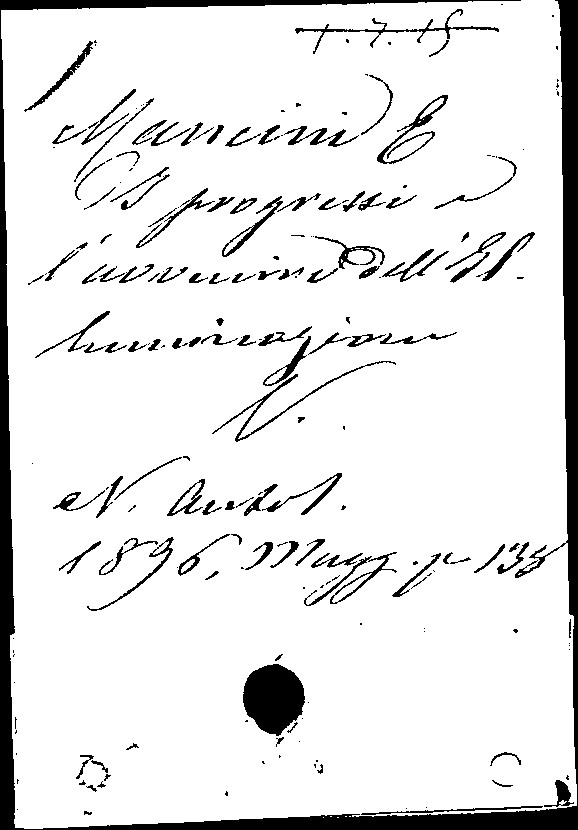 1.7.15
Mancini E
I progressi e
l'avvenire dell'Il-
luminazione
V.
N. Antol.
1896, Magg. p 138